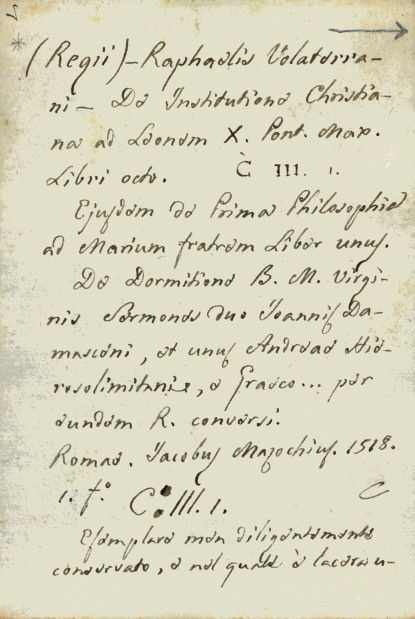 (Regii) - Raphaelis Volaterra-
ni - De Institutione Christia-
na ad Leonem X. Pont. Max.
Libri octo. C III. 1.
Ejusdem de Prima Philosophia
ad Marium fratrem Liber unus.
De Dormitione B. M. Virgi-
nis Sermones duo Joannis Da-
masceni, et unus Andreae Hie-
rosolimitanis, e Graeco... per
eundem R. conversi.
Romae. Jacobus Mazochius. 1518.
1. f.º C. III. 1.
Esemplare men diligentemente
conservato, e nel quale è lacera u-